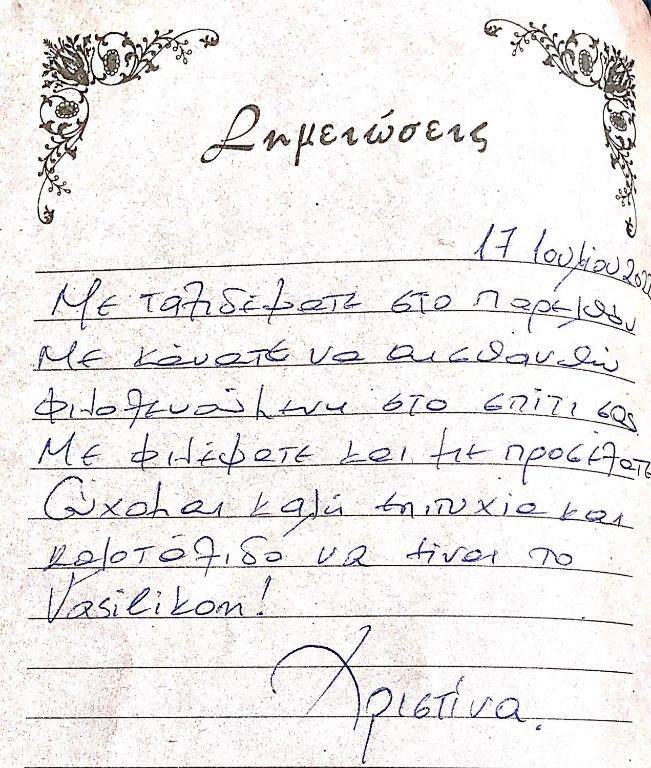 Σημειώσεις
17 Ιουλίου 2022
Με ταξιδέψατε στο παρελθόν
Με κάνατε να αισθανθώ
φιλοξενούμενη στο σπίτι σας.
Με φιλέψατε και με προσέξατε
Εύχομαι καλή επιτυχία και
καλοτάξιδο να είναι το
Vasilikon!
Χριστίνα.